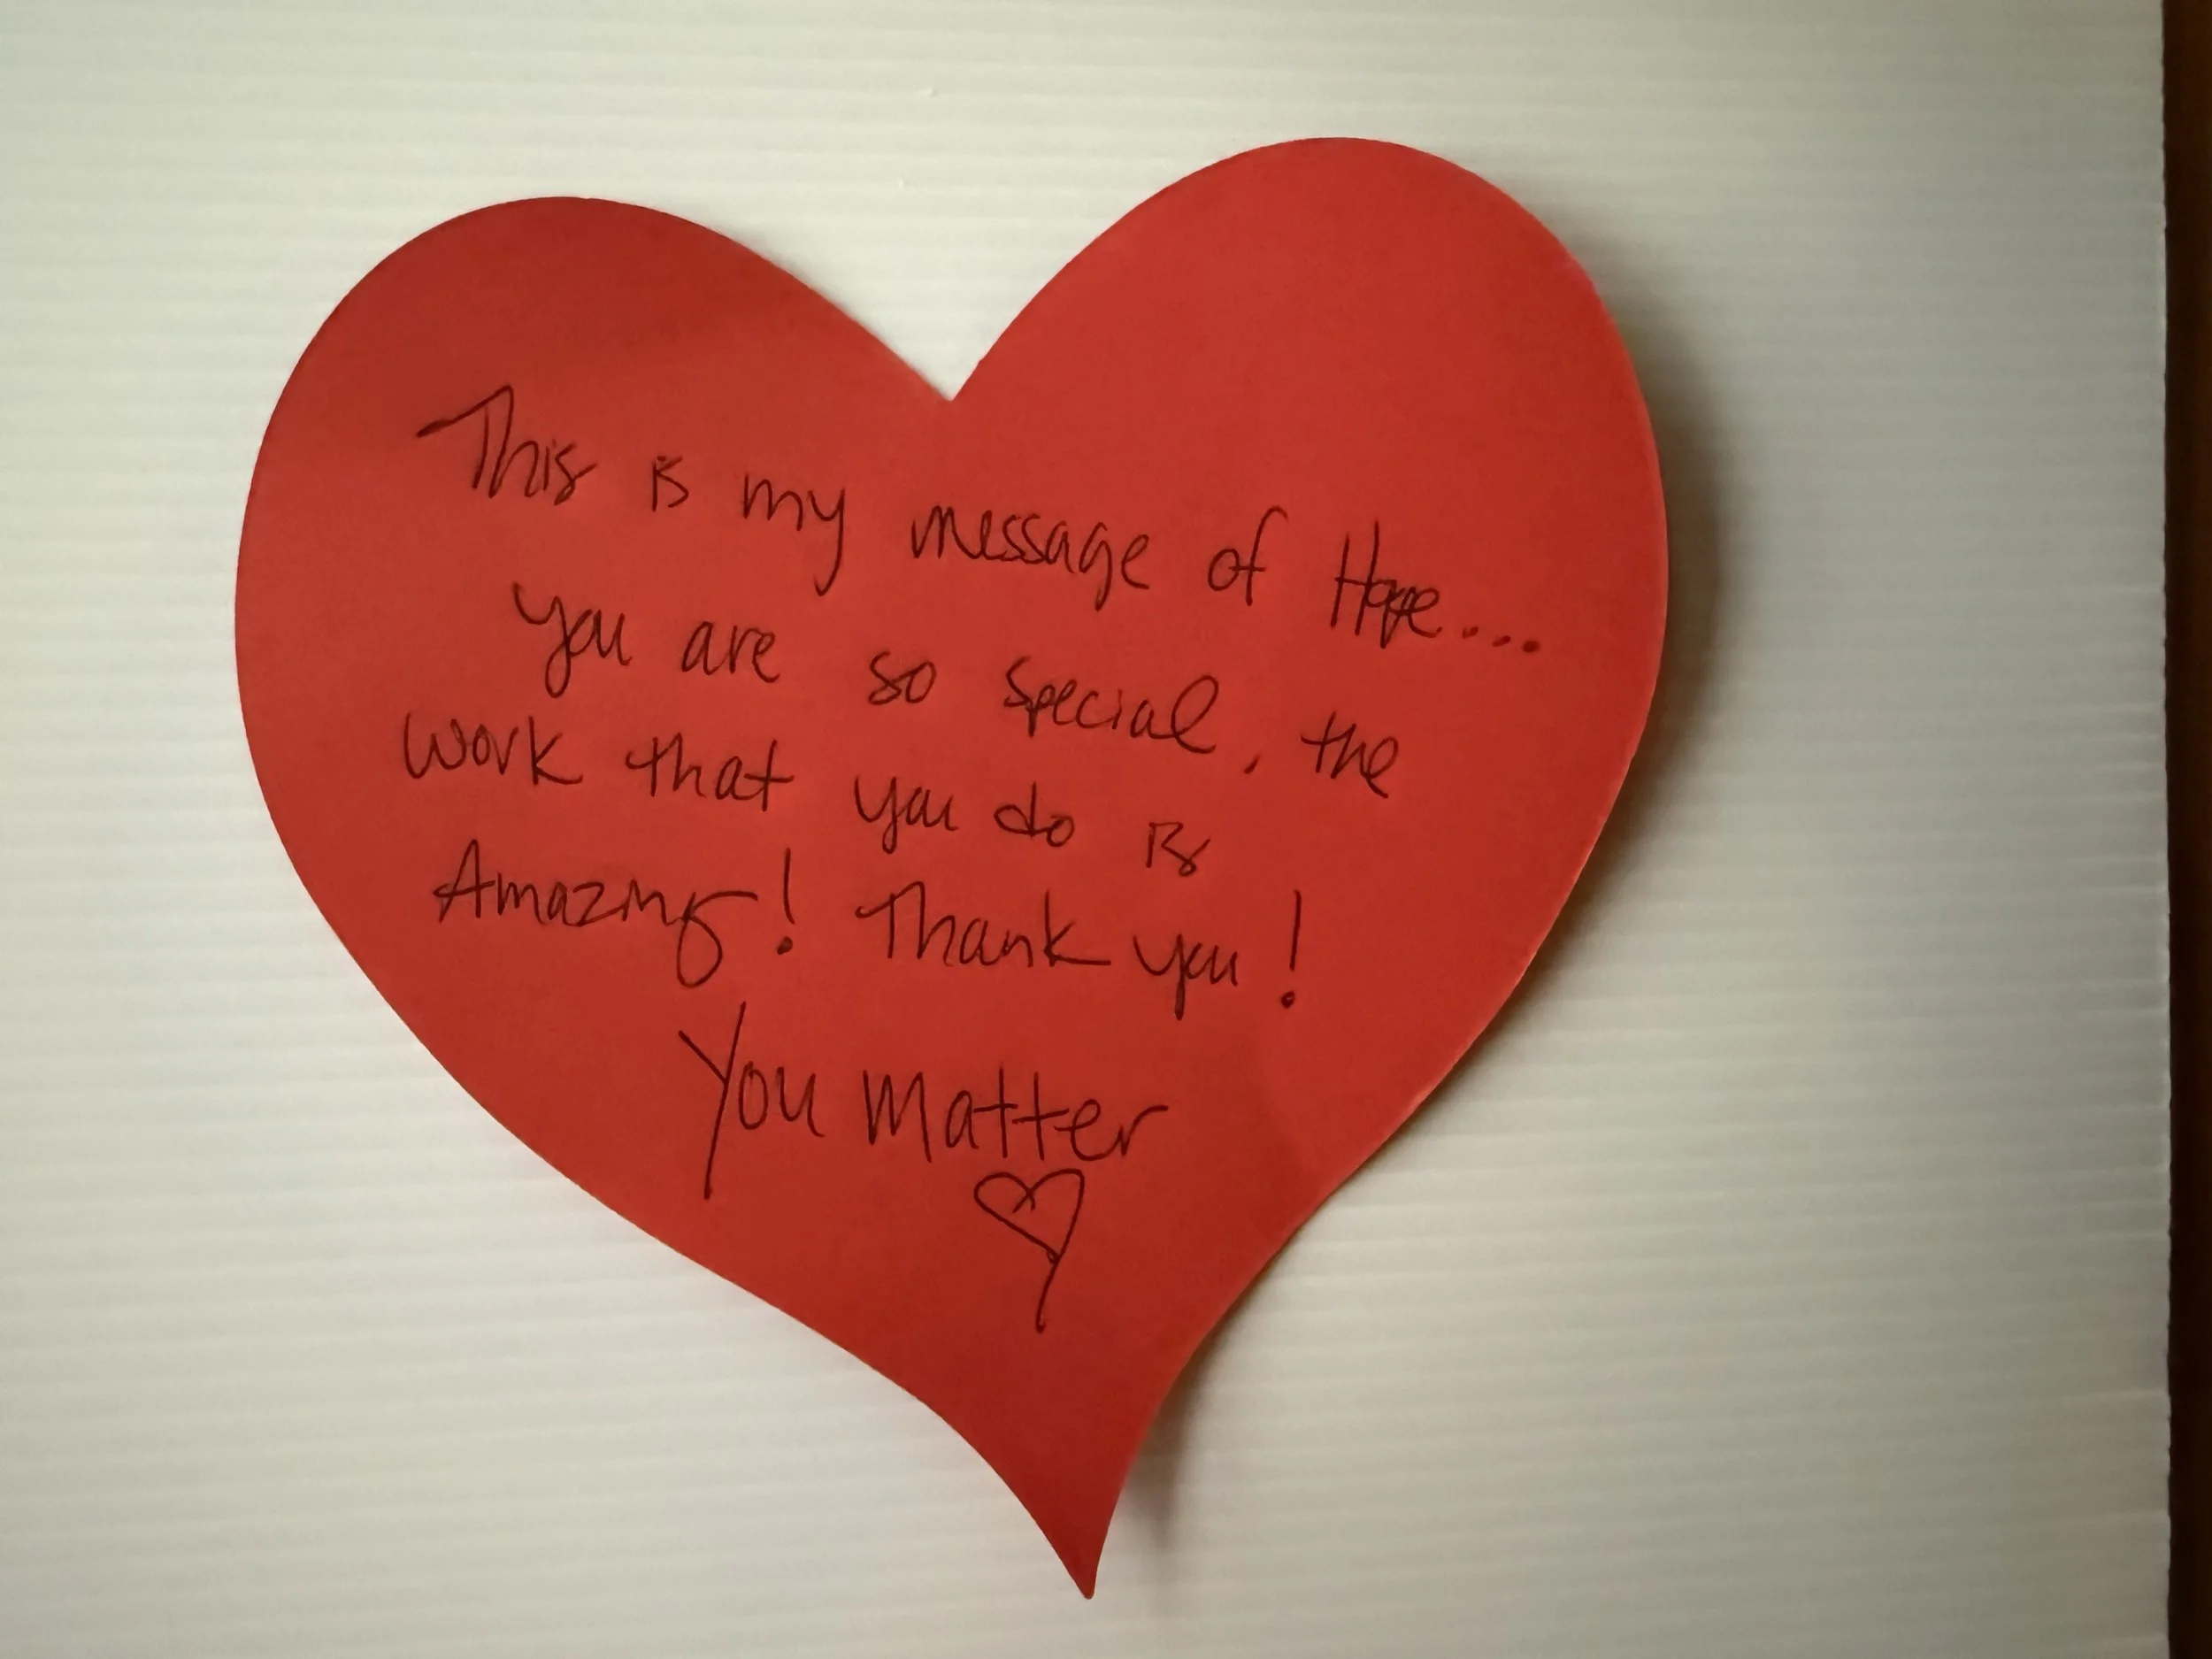 This is my message of Hope...
you are so special, the
work that you do is
Amazing! Thank you!
You Matter